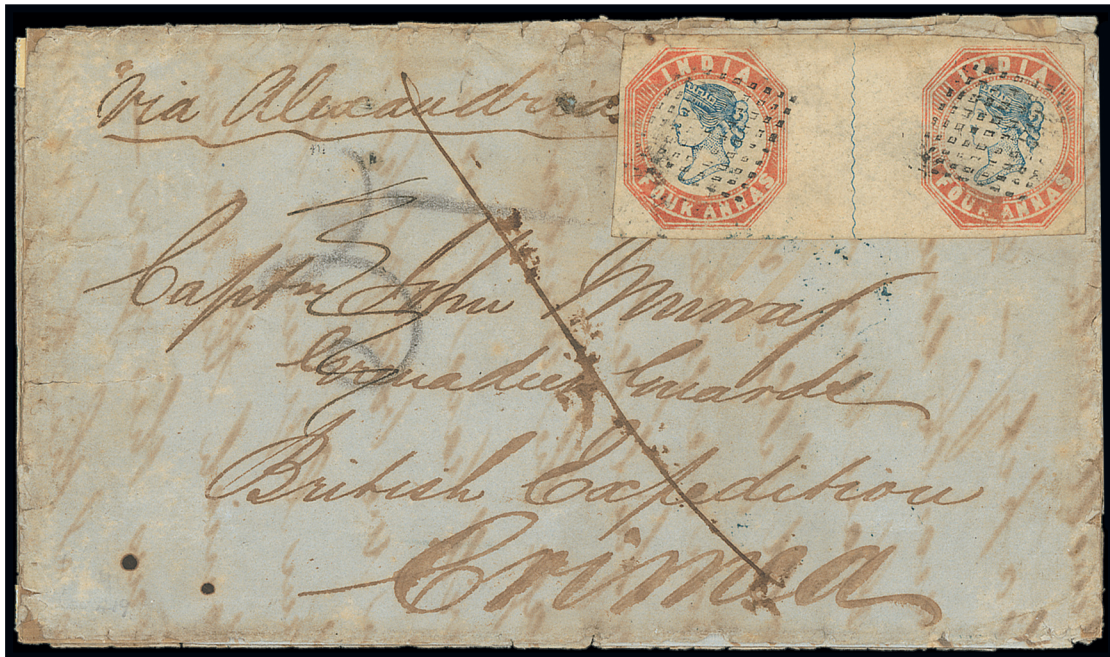 "Via Alexandria
INDIA
FOUR ANNAS
INDIA
FOUR ANNAS
Captn John Murray
Grenadier Guards
British Expedition
Crimea